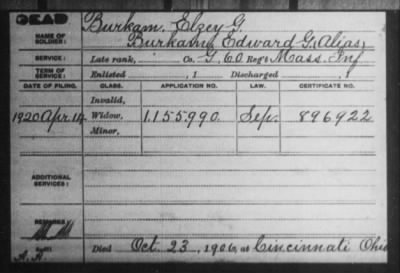 DEAD
NAME OF SOLDIER: Burkam, Elzey G.
Burkam, Edward G. (Alias)
SERVICE: Late rank, Co. G, 60 Reg't Mass. Inf
TERM OF SERVICE: Enlisted , 1 Discharged , 1
DATE OF FILING. CLASS. APPLICATION NO. LAW. CERTIFICATE NO.
Invalid,
1920 Apr. 14 Widow, 1.155.990 Sep. 896922
Minor,
ADDITIONAL SERVICES:
REMARKS:
Died Oct. 23, 1906, at Cincinnati Ohio